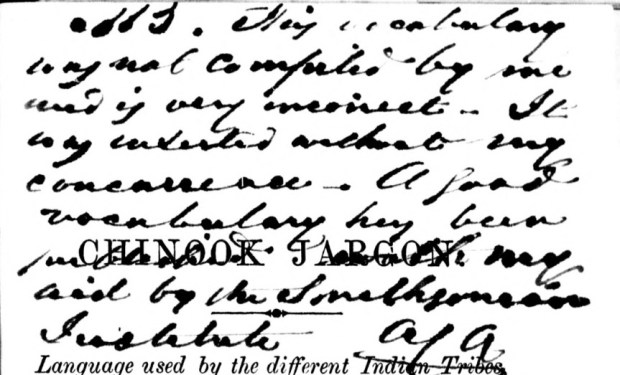 NB. This vocabulary
was not compiled by me
and is very incorrect - It
was inserted without my
concurrence - A good
vocabulary has been
CHINOOK JARGON.
published with my
aid by the Smithsonian
Institute A C A
Language used by the different Indian Tribes,